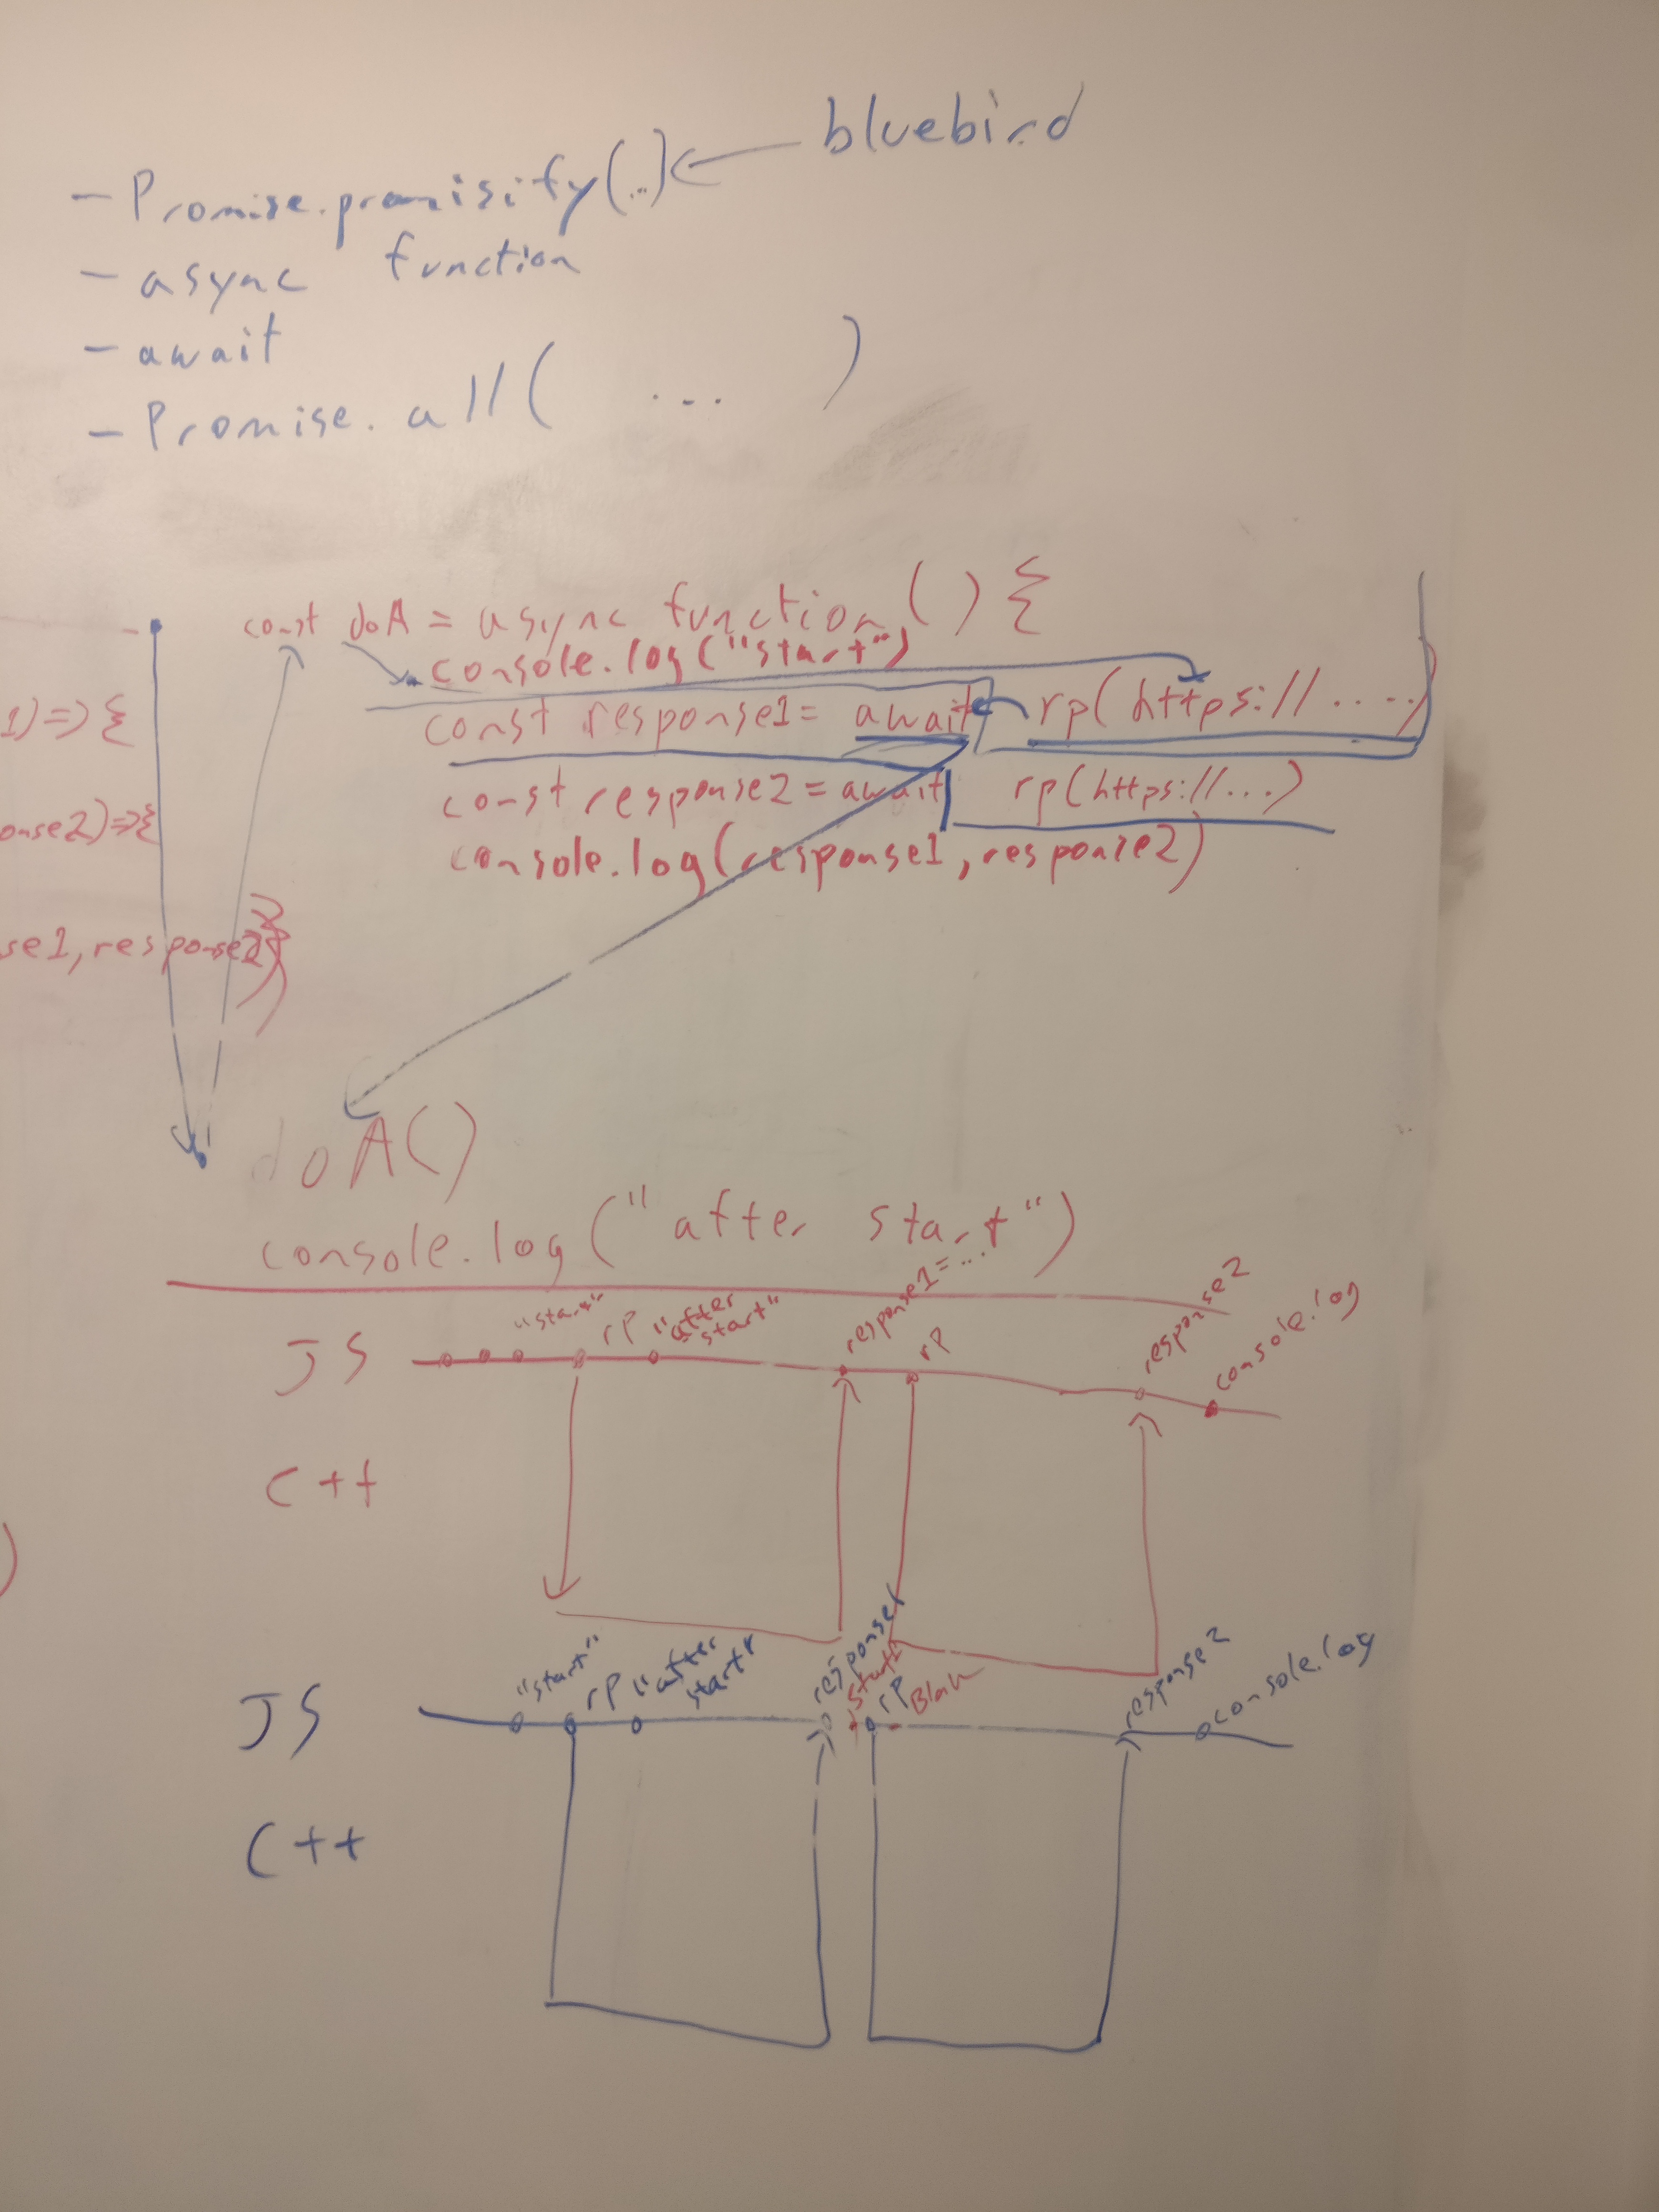 bluebird
- Promise.promisify(...)
- async function
- await
- Promise.all( ... )
const doA = async function () {
console.log("start")
1) => {
const response1 = await rp(https://.....)
const response2 = await rp(https://...)
onse2) => {
console.log(response1, response2)
se1, response2)
})
doA()
console.log("after start")
JS "start" rp "after start" response1=... rp response2 console.log
C++
)
JS "start" rp "after start" response1 start2 rp Blah response2 console.log
C++